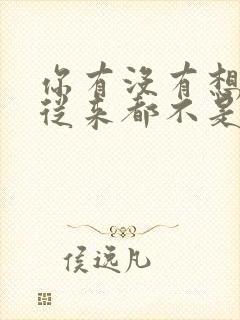 你有没有想
从来都不是
侯远凡